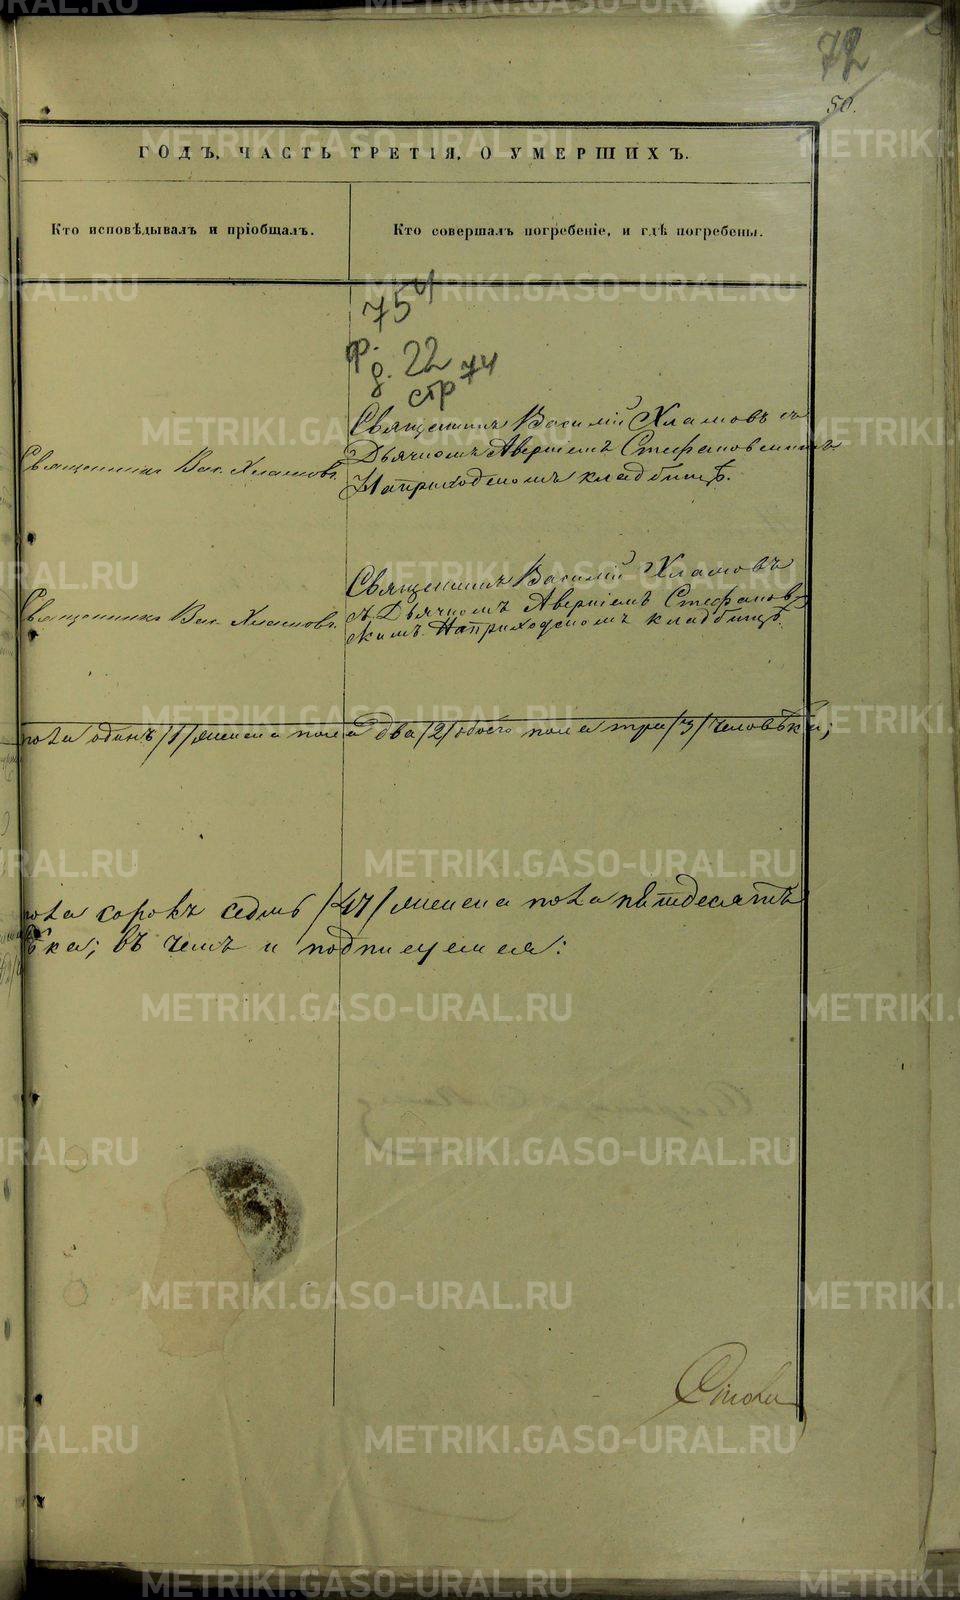 72
50.
ГОДЪ, ЧАСТЬ ТРЕТІЯ, О УМЕРШИХЪ.
Кто исповѣдывалъ и пріобщалъ.
Кто совершалъ погребеніе, и гдѣ погребены.
75
ф.
д. 22
стр 74
Священникъ Вас. Хламовъ.
Священникъ Василій Хламовъ съ
Дьячкомъ Аверкіемъ Стефановскимъ
На приходскомъ кладбищѣ.
Священникъ Вас. Хламовъ.
Священникъ Василій Хламовъ
съ Дьячкомъ Аверкіемъ Стефанов
скимъ. На приходскомъ кладбищѣ.
пола одинъ /1/ женска пола два /2/ обоего пола три /3/ человѣка;
пола сорокъ седмь /47/ женска пола пятдесятъ
ѣка; въ чемъ и подписуемся:
METRIKI.GASO-URAL.RU